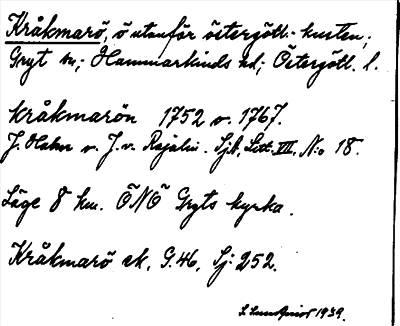 Kråkmarö, ö utanför östergötl. kusten;
Gryt sn; Hammarkinds hd; Östergötl. l.
Kråkmarön 1752 o. 1767.
J. Hahn o. J. v. Rajalin. Sjk, Litt. VII, N:o 18.
Läge 8 km. ÖNÖ Gryts kyrka.
Kråkmarö ek. G.46, Sj: 252.
1939.